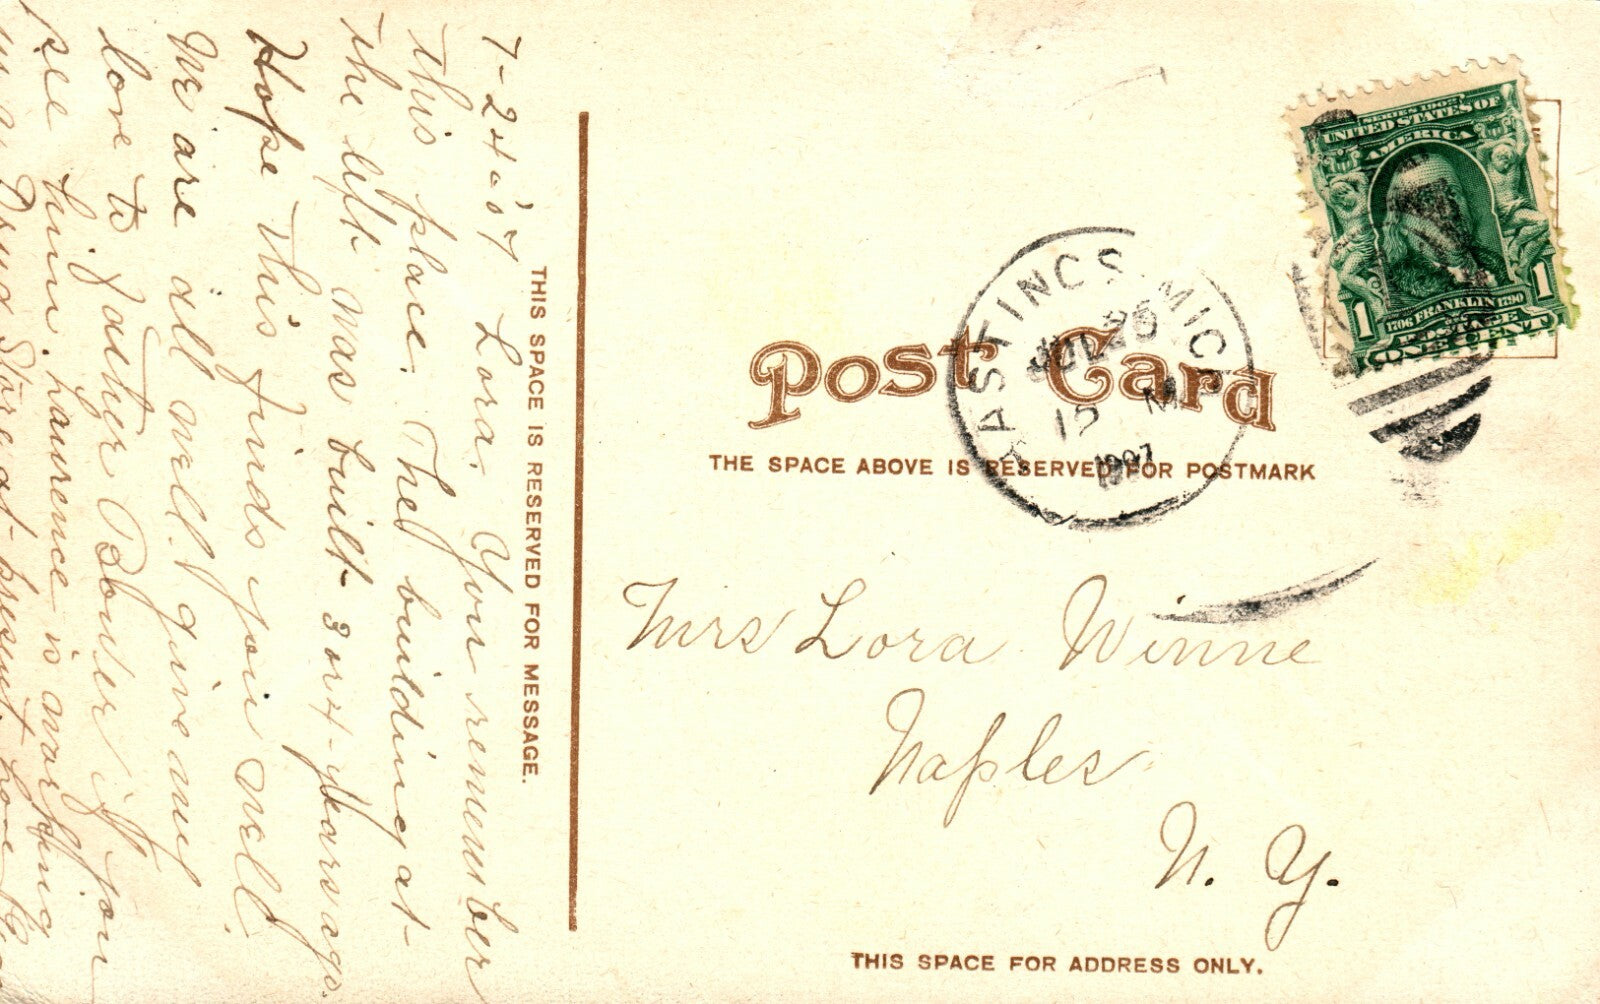 7-24-'07 Lora. You remember
this place. The building at
the left was built 3 or 4 years ago.
Hope this finds you well.
We are all well. give my
love to father Blouer if you
see him. Laurence is working
in a Drug Store at present.
THIS SPACE IS RESERVED FOR MESSAGE.
SERIES 1902
UNITED STATES OF
AMERICA
1706 FRANKLIN 1790
1 1
POSTAGE
ONE CENT
HASTINGS MICH
JUL 25
12 M
1907
Post Card
THE SPACE ABOVE IS RESERVED FOR POSTMARK
Mrs Lora Winne
Naples
N. Y.
THIS SPACE FOR ADDRESS ONLY.